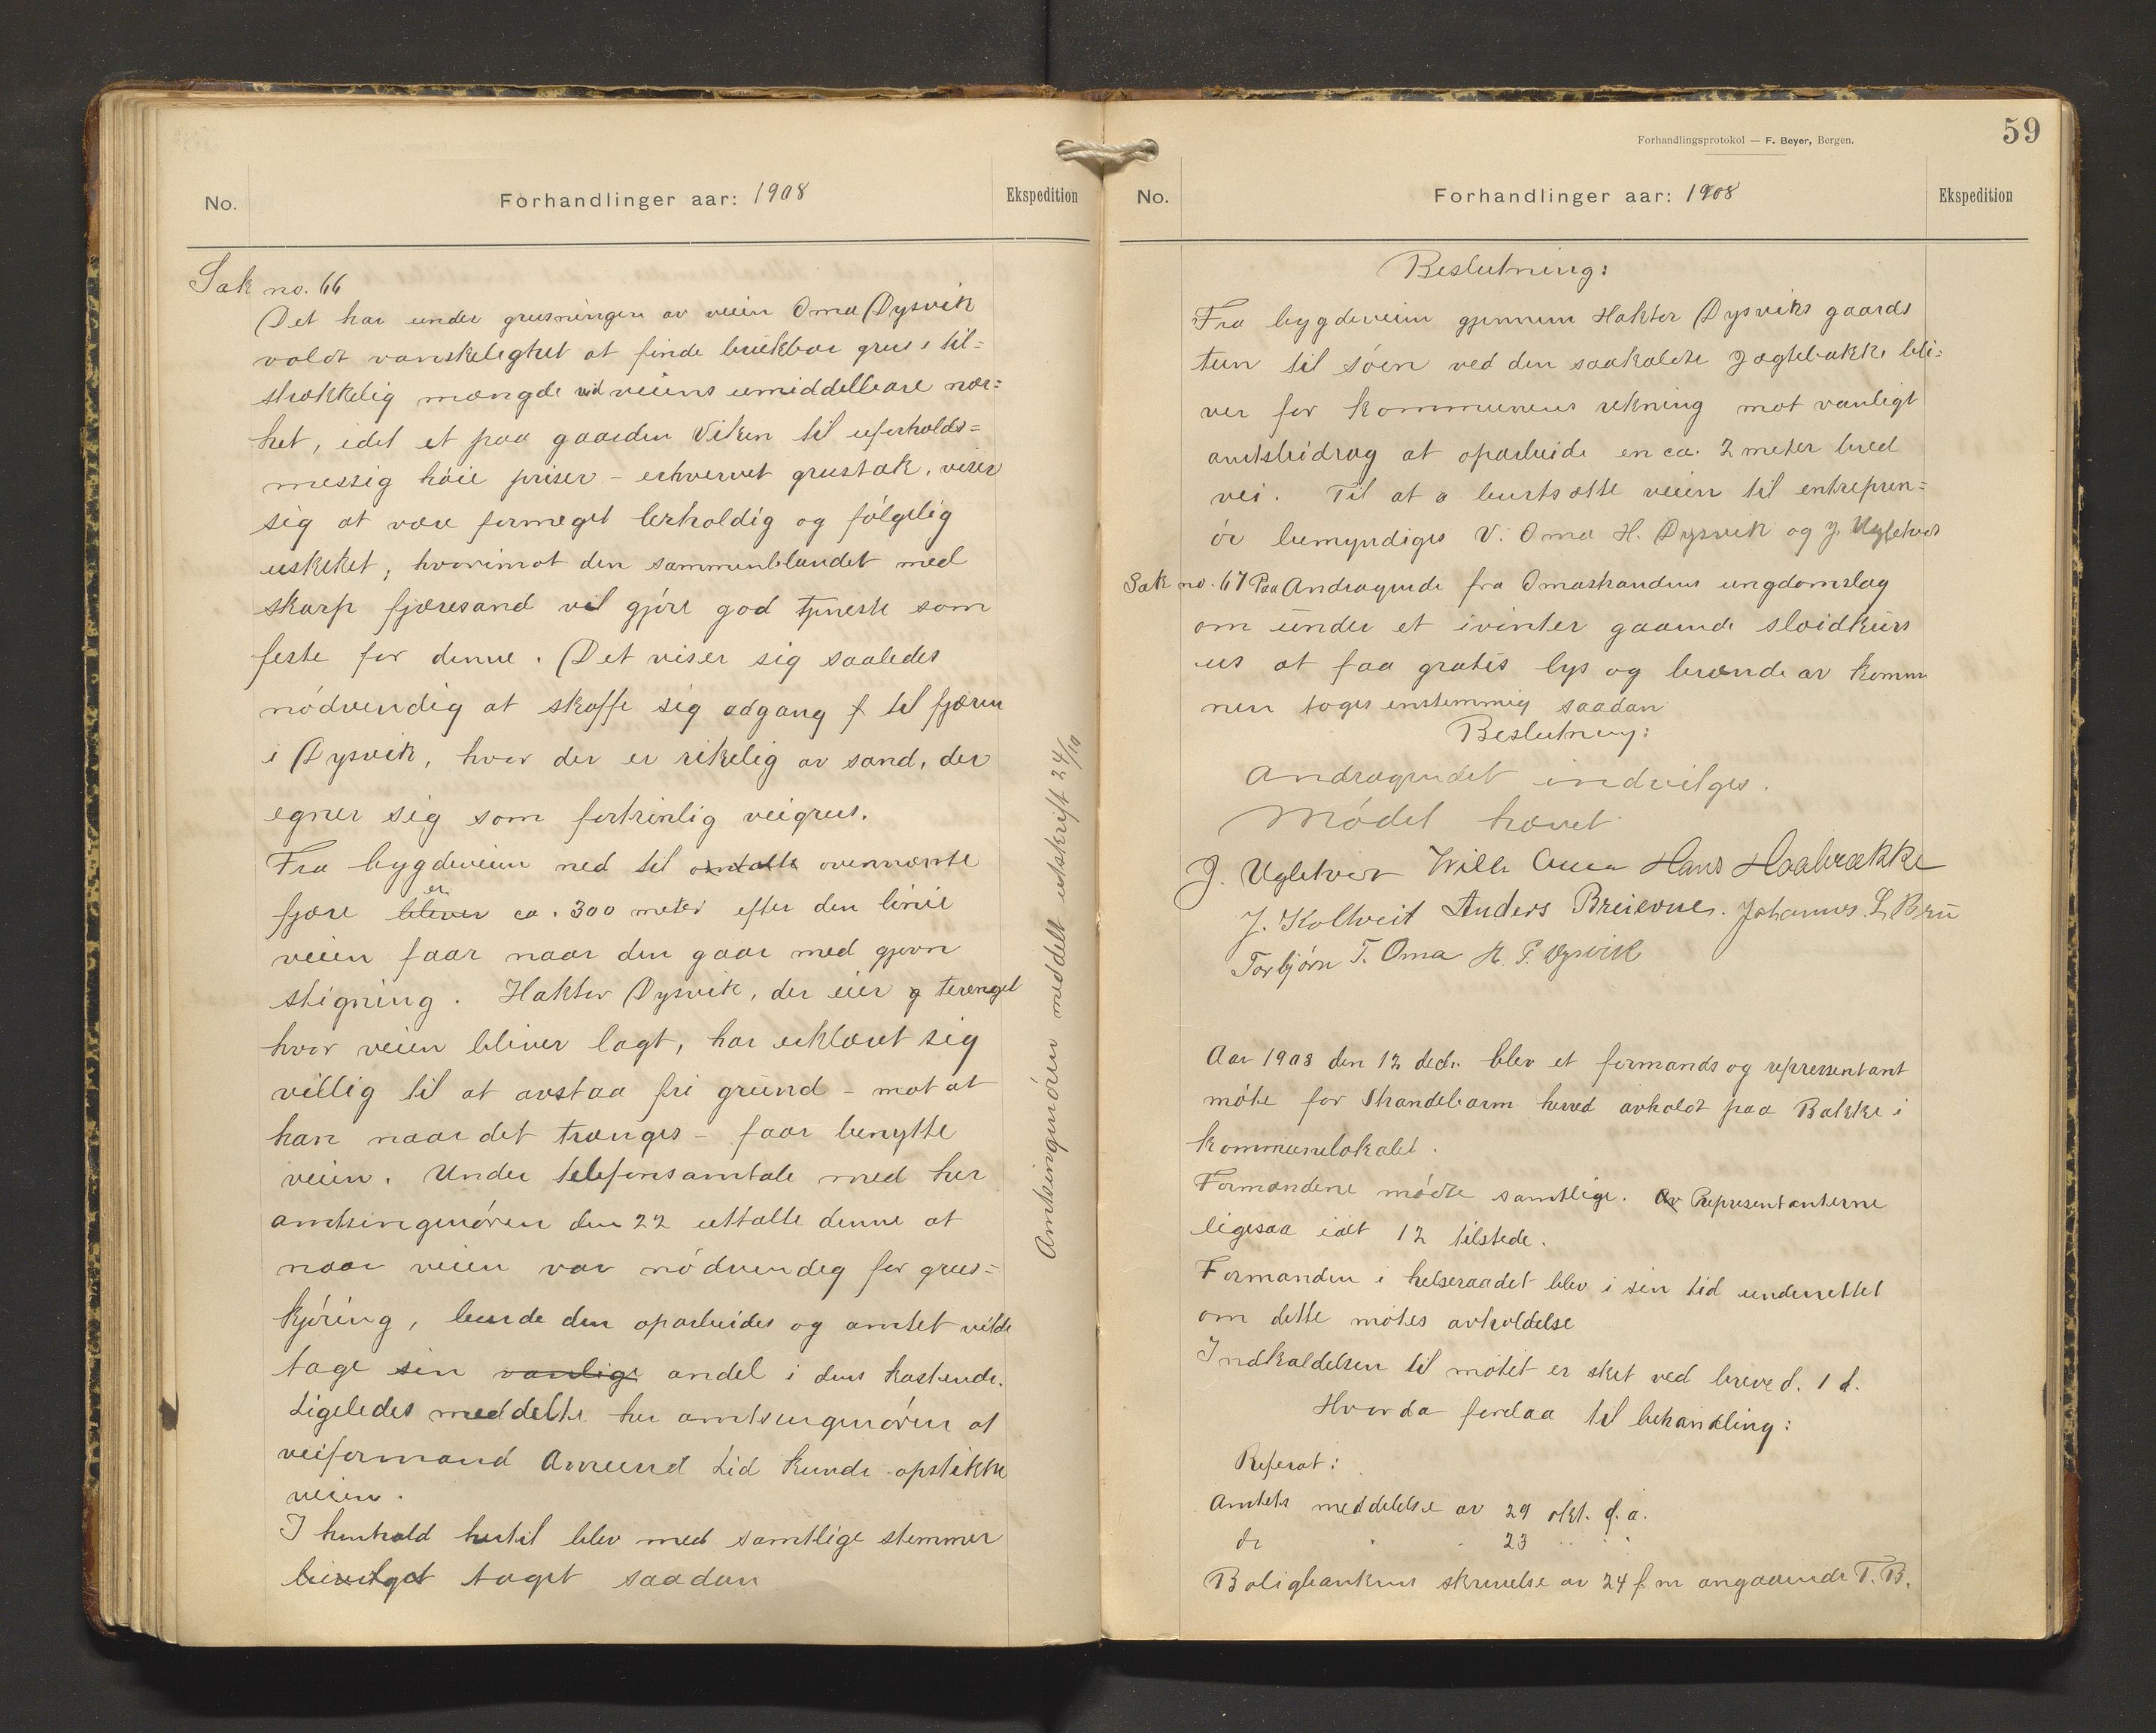 No.
Forhandlinger aar: 1908
Ekspedition
Sak no. 66
Det har under grusningen av veien Oma Dysvik
voldt vanskelighet at finde brukbar grus i til=
strækkelig mængde ved veiens umiddelbare nær=
het, idet et paa gaarden Viken til uforholds=
messig høie priser - erhvervet grustak, viser
sig at være formeget lerholdig og følgelig
uskiket, hvorimot den sammenblandet med
skarp fjæresand vil gjøre god tjeneste som
feste for denne. Det viser sig saaledes
nødvendig at skaffe sig adgang f til fjæren
i Dysvik, hvor der er rikelig av sand, der
egner sig som fortrinlig veigrus.
Fra bygdeveien ned til omtalte ovennævnte
fjære bliver er ca. 300 meter efter den linie
veien faar naar den gaar med gjevn
stigning. Haktor Dysvik, der eier g terænget
hvor veien bliver lagt, har erklæret sig
villig til at avstaa fri grund - mot at
han naar det trænges - faar benytte
veien. Under telefonsamtale med her
amtsingeniøren den 22 uttalte denne at
naar veien var nødvendig for grus=
kjøring, burde den oparbeides og amtet vilde
tage sin vanlige andel i dens kostende.
Ligeledes meddelte her amtsingeniøren at
veiformand Amund Lid kunde opstikke
veien.
I henhold hertil blev med samtlige stemmer
bevilget taget saadan
Amtsingeniøren meddelt utskrift 24/10
Forhandlingsprotokol — F. Beyer, Bergen.
59
No.
Forhandlinger aar: 1908
Ekspedition
Beslutning:
Fra bygdeveien gjennem Haktor Dysviks gaards
tun til søen ved den saakaldte Jagtebakke bli=
ver for kommunens rekning mot vanligt
amtsbidrag at oparbeide en ca. 2 meter bred
vei. Til at a bortsætte veien til entrepren=
ør bemyndiges V. Oma H. Dysvik og J. Ugletveit
Sak no. 67 Paa Andragende fra Omastrandens ungdomslag
om under et ivinter gaaende sløidkurs
us at faa gratis lys og brænde av kommu
nen toges enstemmig saadan
Beslutning:
Andragendet indvilges.
Mødet hævet
J. Ugletveit Wille Oma Hans Haabrække
J. Koltveit Anders Breievne. Johannes L Bru
Torbjørn T. Oma H. P. Dysvik
Aar 1908 den 12 decbr. blev et formands og repressentant
møte for Strandebarm herred avholdt paa Bakke i
kommunelokalet.
Formændene mødte samtlige. Av Representanterne
ligesaa ialt 12 tilstede.
Formanden i helseraadet blev i sin tid underrettet
om dette møtes avholdelse
Indkaldelsen til møtet er sket ved brev d. 1 d.
Hvorda forelaa til behandling:
Referat:
Amtets meddelelse av 29 okt. d. a.
do " - 23 " " "
Boligbankens skrivelse av 24 f. m angaaende T. B.